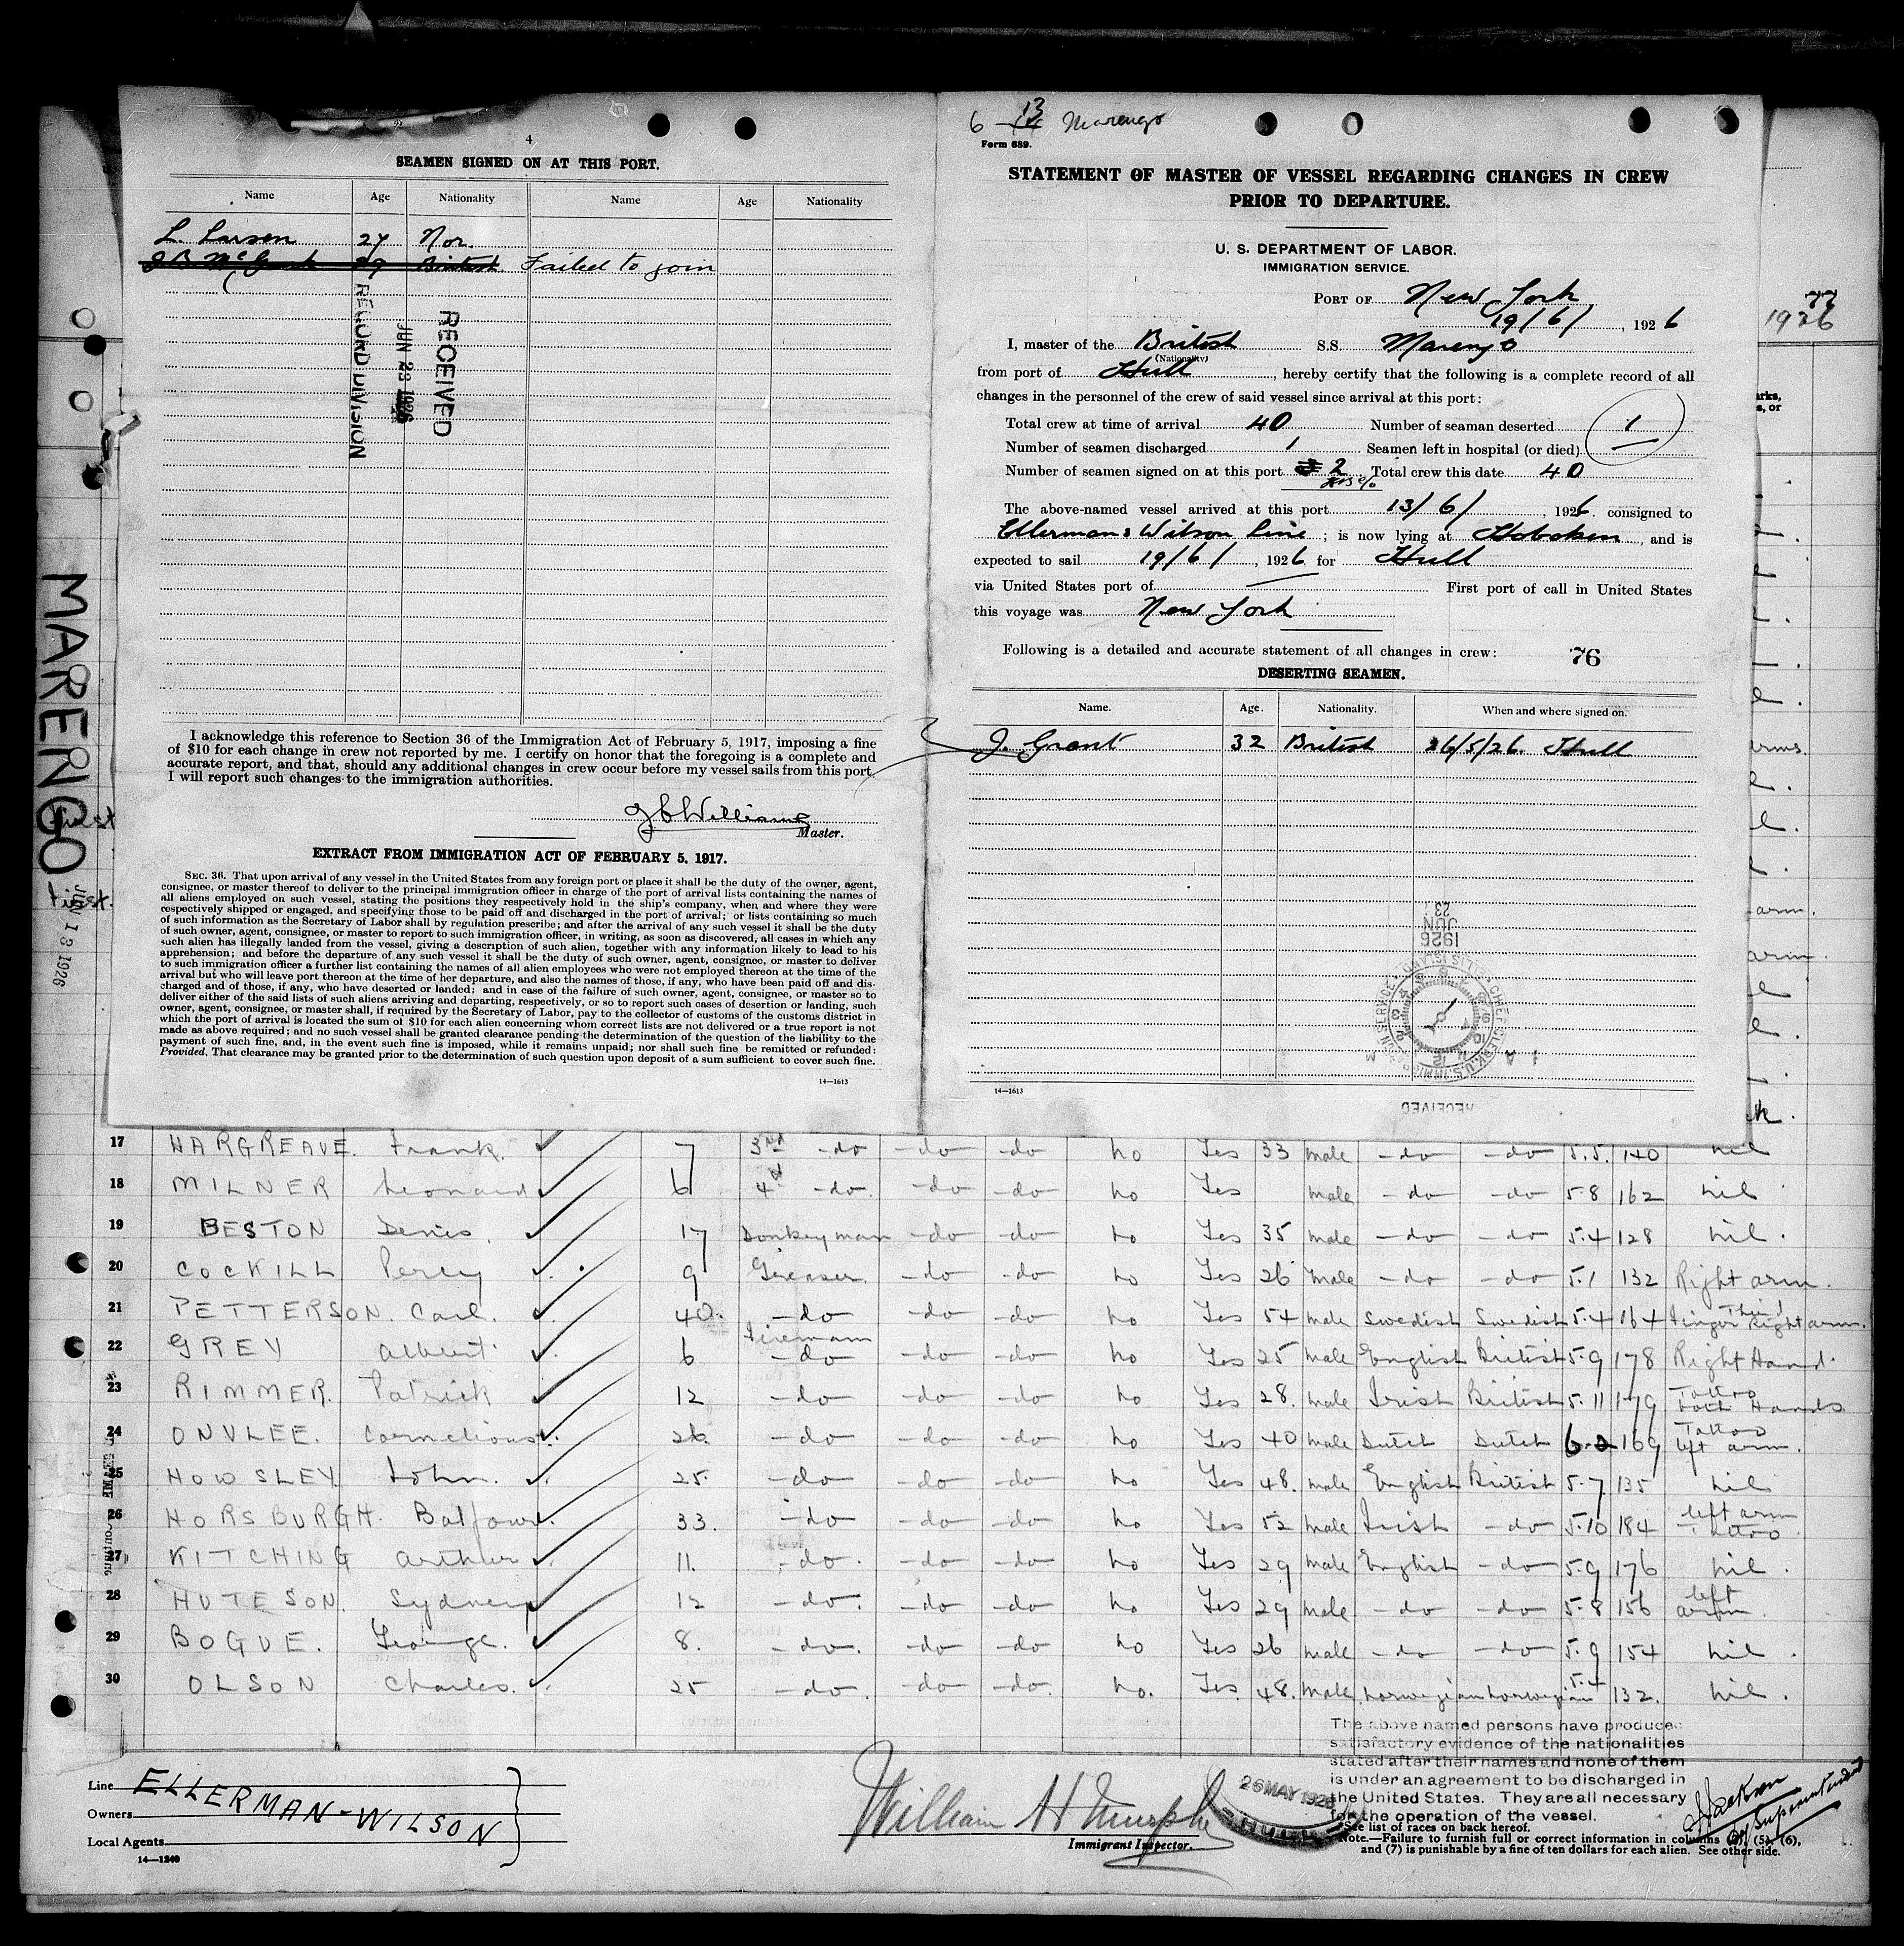 4
SEAMEN SIGNED ON AT THIS PORT.
Name Age Nationality Name Age Nationality
L. Larsen 27 Nor.
Failed to join
RECEIVED
JUN 23 1926
RECORD DIVISION
I acknowledge this reference to Section 36 of the Immigration Act of February 5, 1917, imposing a fine
of $10 for each change in crew not reported by me. I certify on honor that the foregoing is a complete and
accurate report, and that, should any additional changes in crew occur before my vessel sails from this port
I will report such changes to the immigration authorities.
Williams
Master.
EXTRACT FROM IMMIGRATION ACT OF FEBRUARY 5, 1917.
SEC. 36. That upon arrival of any vessel in the United States from any foreign port or place it shall be the duty of the owner, agent,
consignee, or master thereof to deliver to the principal immigration officer in charge of the port of arrival lists containing the names of
all aliens employed on such vessel, stating the positions they respectively hold in the ship's company, when and where they were
respectively shipped or engaged, and specifying those to be paid off and discharged in the port of arrival; or lists containing so much
of such information as the Secretary of Labor shall by regulation prescribe; and after the arrival of any such vessel it shall be the duty
of such owner, agent, consignee, or master to report to such immigration officer, in writing, as soon as discovered, all cases in which any
such alien has illegally landed from the vessel, giving a description of such alien, together with any information likely to lead to his
apprehension; and before the departure of any such vessel it shall be the duty of such owner, agent, consignee, or master to deliver
to such immigration officer a further list containing the names of all alien employees who were not employed thereon at the time of the
arrival but who will leave port thereon at the time of her departure, and also the names of those, if any, who have been paid off and dis-
charged and of those, if any, who have deserted or landed; and in case of the failure of such owner, agent, consignee, or master so to
deliver either of the said lists of such aliens arriving and departing, respectively, or so to report such cases of desertion or landing, such
owner, agent, consignee, or master shall, if required by the Secretary of Labor, pay to the collector of customs of the customs district in
which the port of arrival is located the sum of $10 for each alien concerning whom correct lists are not delivered or a true report is not
made as above required; and no such vessel shall be granted clearance pending the determination of the question of the liability to the
payment of such fine, and, in the event such fine is imposed, while it remains unpaid; nor shall such fine be remitted or refunded:
Provided, That clearance may be granted prior to the determination of such question upon deposit of a sum sufficient to cover such fine.
14—1613
6 13 Marengo
Form 689.
STATEMENT OF MASTER OF VESSEL REGARDING CHANGES IN CREW
PRIOR TO DEPARTURE.
U. S. DEPARTMENT OF LABOR.
IMMIGRATION SERVICE.
PORT OF New York
19/6/, 1926
I, master of the British S.S. Marengo
(Nationality)
from port of Hull, hereby certify that the following is a complete record of all
changes in the personnel of the crew of said vessel since arrival at this port:
Total crew at time of arrival 40 Number of seaman deserted 1
Number of seamen discharged 1 Seamen left in hospital (or died) —
Number of seamen signed on at this port 2 Total crew this date 40
The above-named vessel arrived at this port 13/6/, 1926. consigned to
Ellermans Wilson Line; is now lying at Hoboken, and is
expected to sail 19/6/, 1926 for Hull
via United States port of — First port of call in United States
this voyage was New York
Following is a detailed and accurate statement of all changes in crew: 76
DESERTING SEAMEN.
Name. Age. Nationality. When and where signed on.
J. Grant 32 British 26/5/26. Hull
23
JUN
1926
RECEIVED
14—1613
77
1926
MARENGO
JUN 13 1926
17 HARGREAVE. Frank. 7 3rd -do -do -do no Yes 33 male -do -do 5.5. 140 nil
18 MILNER Leonard 6 4 -do. -do -do no Yes male -do -do 5-8 162 nil
19 BESTON Denis. 17 Donkeyman -do -do no Yes 35 male -do -do 5.4 128 nil.
20 COCKILL Percy 9 Greaser -do -do no Yes 26 male -do -do 5.1 132 Right arm.
21 PETTERSON. Carl. 40. -do -do -do no Yes 54 male Swedish Swedish 5.4 164 Third finger Right arm.
22 GREY Albert 6 Fireman -do -do -do no Yes 25 male English British 5.9 178 Right Hand.
23 RIMMER. Patrick 12 -do -do -do no Yes 28. male Irish British 5.11 179 Tattoo both Hands
24 ONVLEE. Cornelious. 26. -do -do -do no Yes 40 male Dutch Dutch 6.0 169 Tattoo left arm.
25 HOWSLEY John. 25. -do -do -do no Yes 48. male English British 5.7 135 nil
26 HORSBURGH. Balfour. 33. -do -do -do no Yes 52 male Irish -do 5.10 184 left arm Tattoo.
27 KITCHING Arthur 11. -do. -do -do no Yes 29 male English -do 5.9 176 nil.
28 HUTESON. Sydney 12 -do. -do -do no Yes 29 male -do -do 5.8 156 left arm.
29 BOGUE. George. 8. -do. -do -do no Yes 26 male -do -do 5.9 154 nil.
30 OLSON Charles. 25 -do. -do -do. no. Yes 48. male norwegian norwegian 5.4 132. nil.
The above named persons have produced
satisfactory evidence of the nationalities
stated after their names and none of them
is under an agreement to be discharged in
the United States. They are all necessary
for the operation of the vessel.
Line ELLERMAN-WILSON
Owners
Local Agents
14—1240
William H Murphy
Immigrant Inspector.
26 MAY 1926
HULL
Jackson
Superintendent
*See list of races on back hereof.
Note.—Failure to furnish full or correct information in columns (5), (6),
and (7) is punishable by a fine of ten dollars for each alien. See other side.